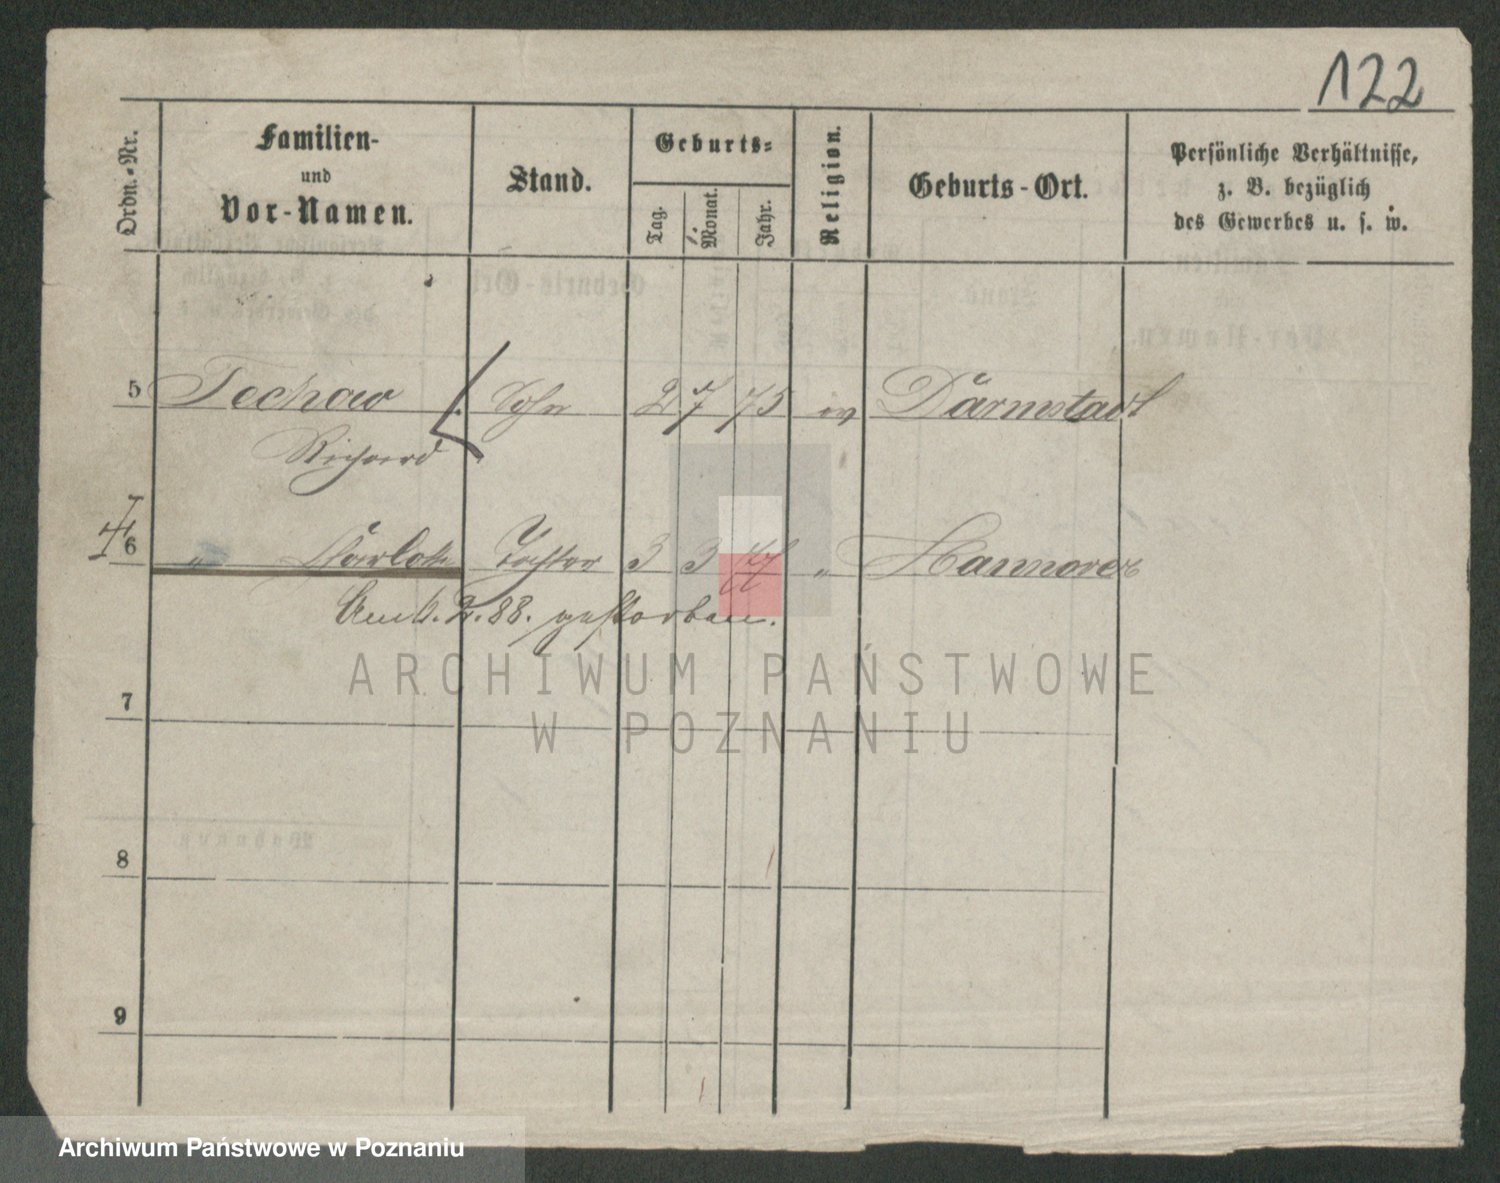 122
Ordn.-Nr.
Familien-
und
Vor-Namen.
Stand.
Geburts-
Tag.
Monat.
Jahr.
Religion.
Geburts-Ort.
Persönliche Verhältnisse,
z. B. bezüglich
des Gewerbes u. s. w.
5 Techow Sohn 2 7 75 ev Darmstadt
Richard
6 " Tochter 3 3 " Hannover
Am 4. 2. 88. gestorben.
ARCHIWUM PAŃSTWOWE
W POZNANIU
7
8
9
Archiwum Państwowe w Poznaniu